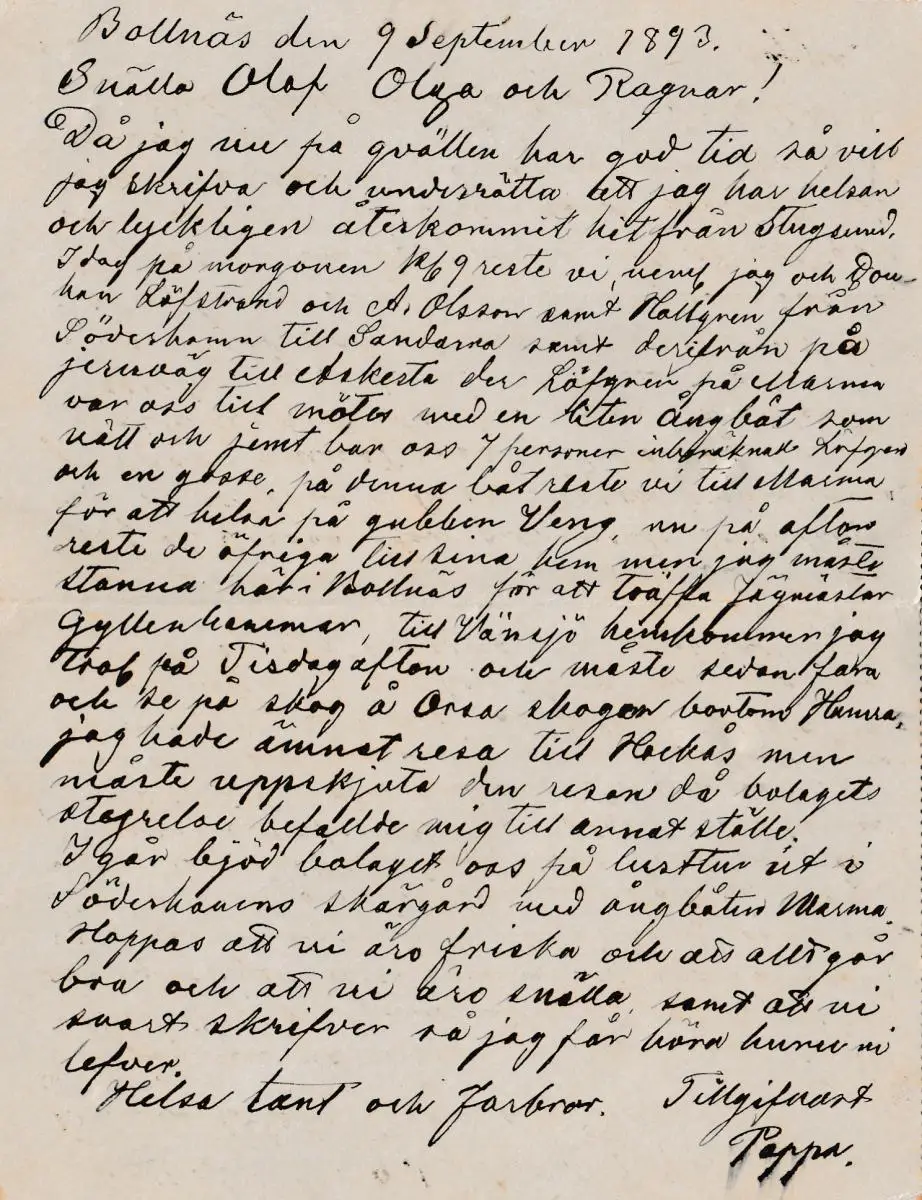 Bollnäs den 9 September 1893.
Snälla Olof Olga och Ragnar!
Då jag nu på qvällen har god tid så vill
jag skrifva och underrätta att jag har helsan
och lyckligen återkommit hit från Stugsund.
I dag på morgonen kl 9 reste vi, neml jag och
han Löfstrand och A. Olsson samt Hallgren från
Söderhamn till Sandarna samt derifrån på
jernväg till Askesta der Löfgren på Marma
var oss till mötes med en liten Ångbåt som
nätt och jemt bar oss 7 personer inberäknade Löfgren
och en gosse, på denna båt reste vi till Marma
för att helsa på gubben Veng, nu på afton
reste de öfriga till sina hem men jag måste
stanna här i Bollnäs för att träffa Jägmästar
Gyllenhammar, till Vänsjö hemkommer jag
trol på Tisdag afton och måste sedan fara
och se på skog å Orsa skogen bortom Hamra,
jag hade ämnat resa till Hockås men
måste uppskjuta den resan då bolagets
styrelse befallde mig till annat ställe.
I går bjöd bolaget oss på lusttur ut i
Söderhamns skärgård med ångbåten Marma.
Hoppas att ni äro friska och att allt går
bra och att ni äro snälla, samt att ni
snart skrifver så jag får höra huru ni
lefver.
Helsa tant och Farbror. Tillgifnast
Pappa.